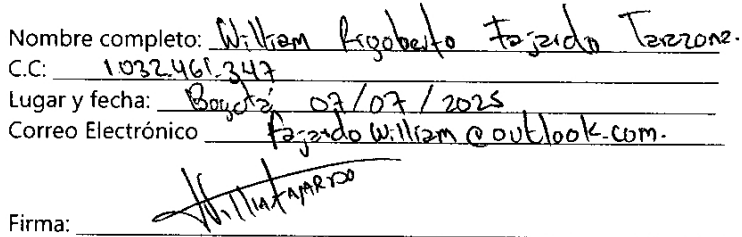 Nombre completo: William Rigoberto Fajardo Tarazona.
C.C: 1032.461.347
Lugar y fecha: Bogotá 07/07/2025
Correo Electrónico fajardowilliam@outlook.com.
William FAJARDO
Firma: